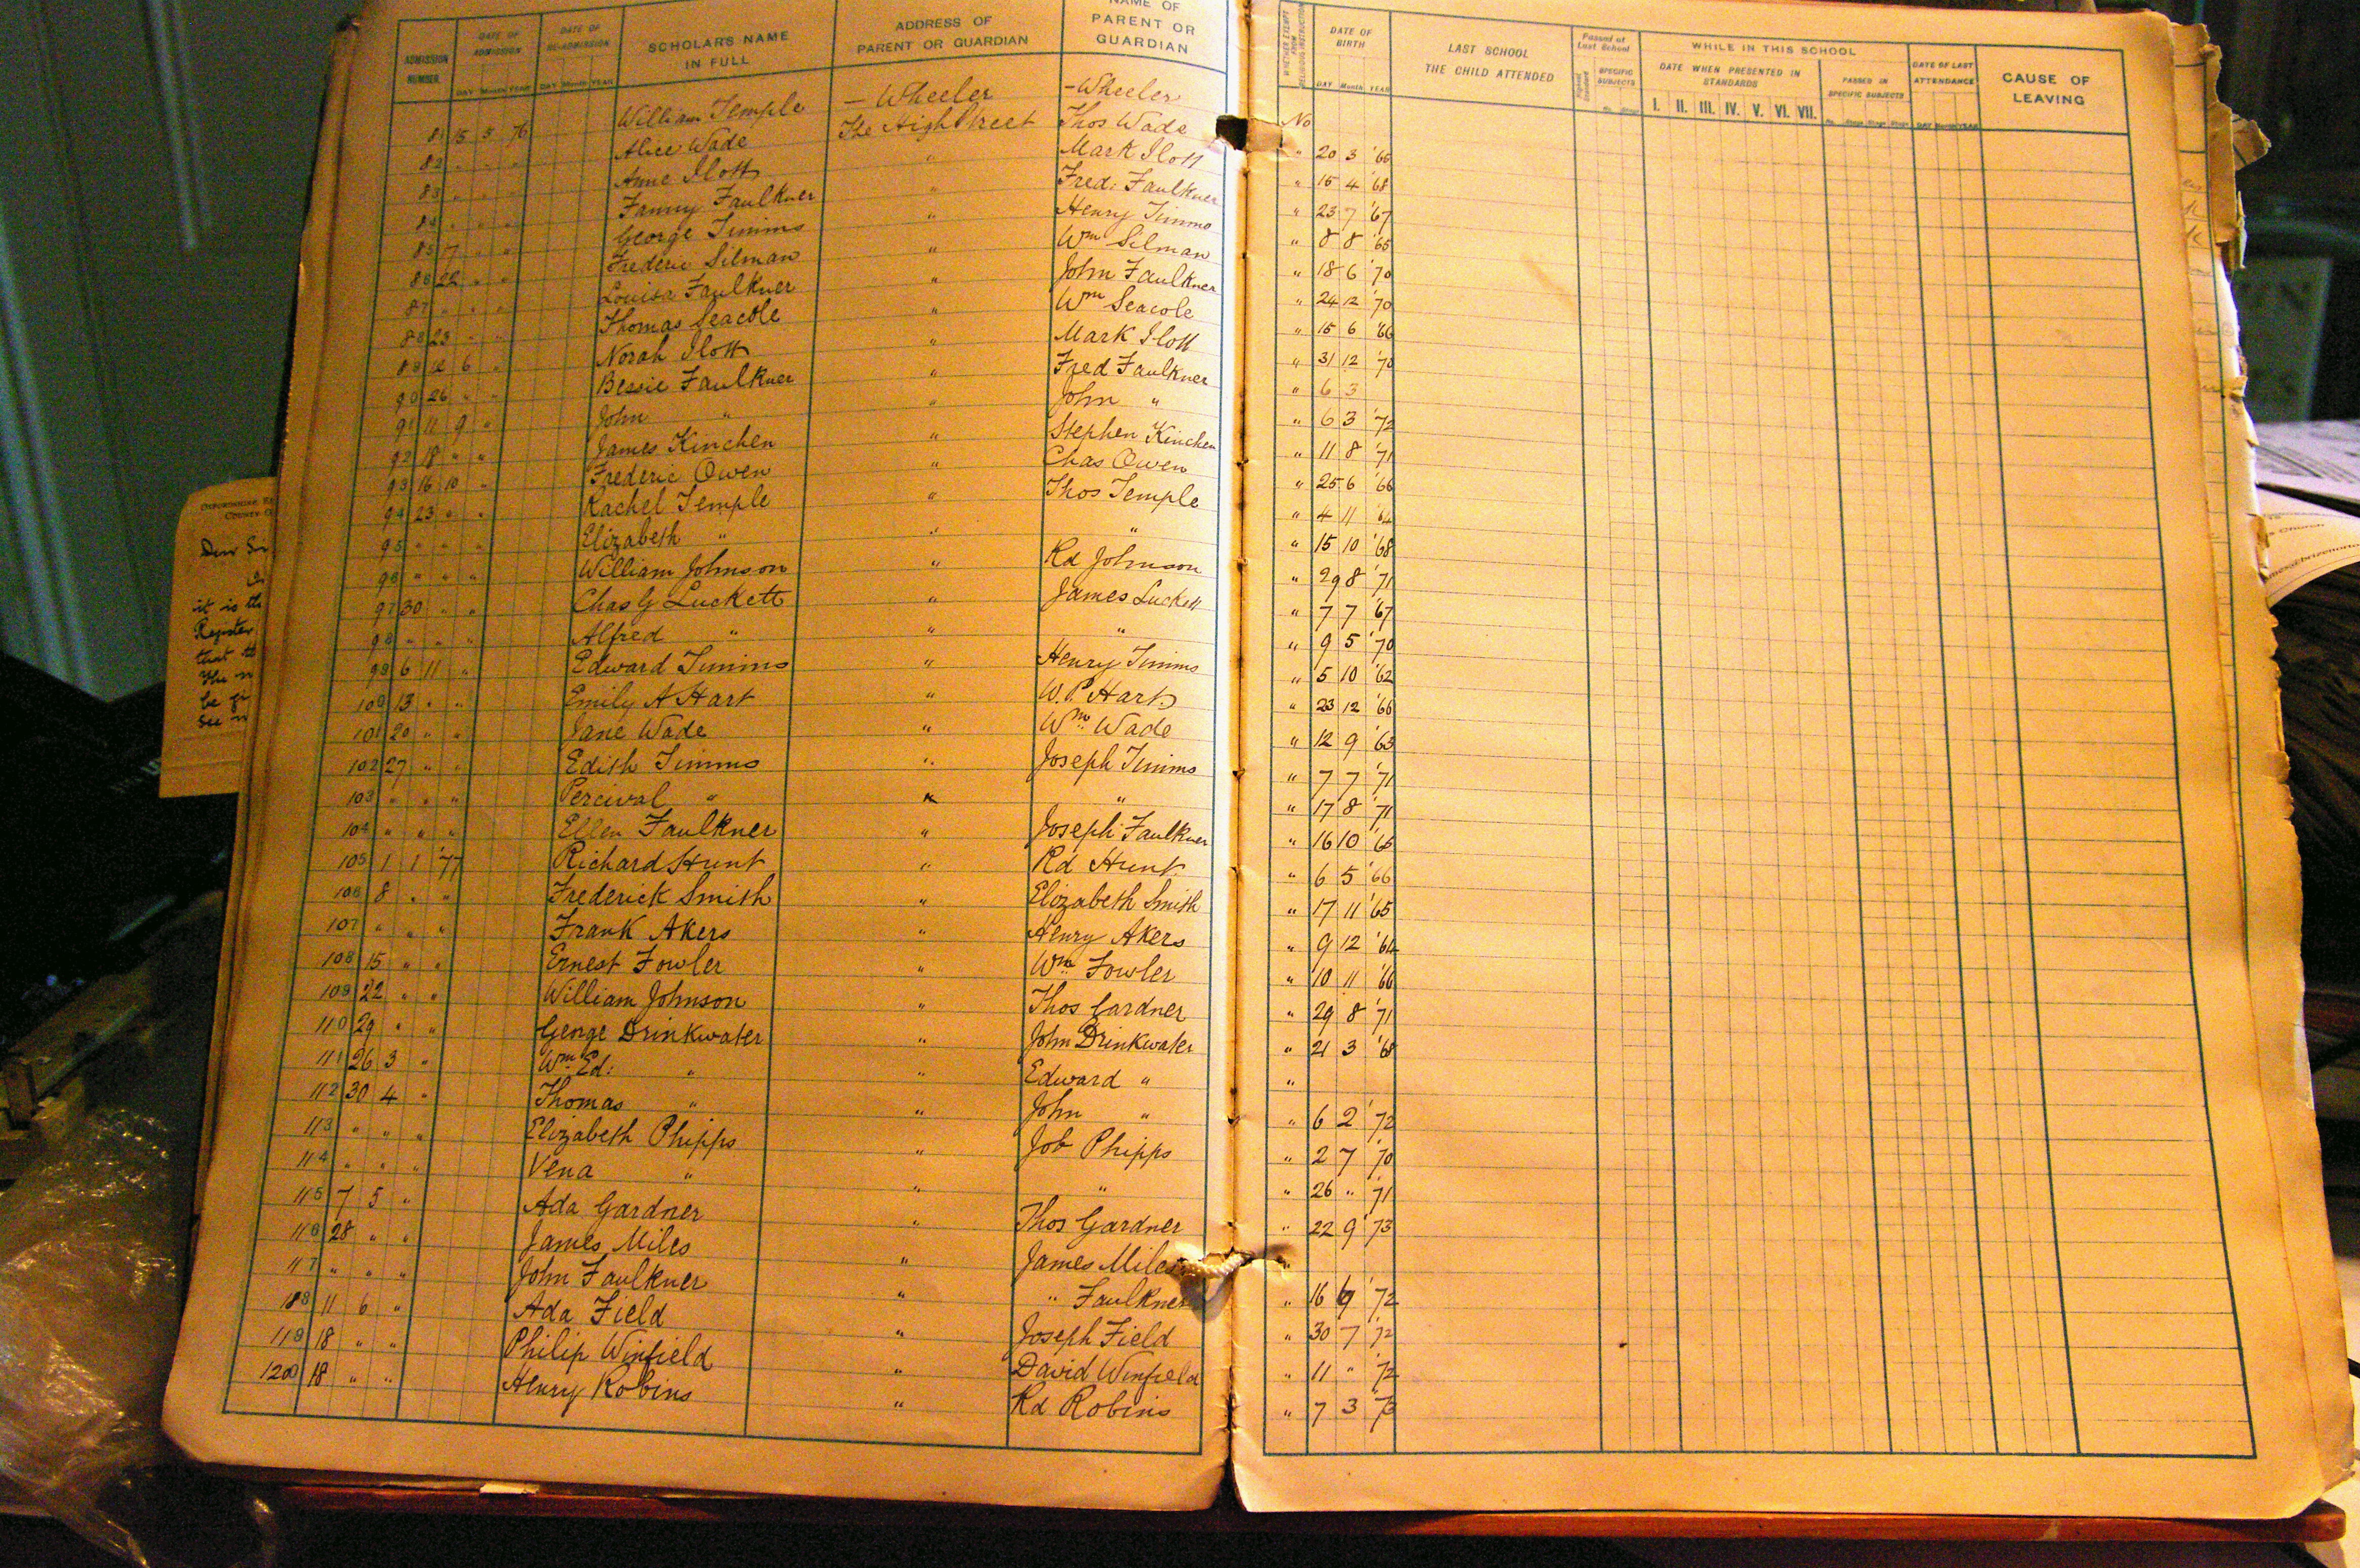 ADMISSION NUMBER DATE OF ADMISSION DAY Month YEAR DATE OF RE-ADMISSION DAY Month YEAR SCHOLAR'S NAME IN FULL ADDRESS OF PARENT OR GUARDIAN NAME OF PARENT OR GUARDIAN WHETHER EXEMPT FROM RELIGIOUS INSTRUCTION DATE OF BIRTH DAY Month YEAR LAST SCHOOL THE CHILD ATTENDED Passed at Last School SPECIFIC SUBJECTS No. Stage WHILE IN THIS SCHOOL DATE WHEN PRESENTED IN STANDARDS I. II. III. IV. V. VI. VII. PASSED IN SPECIFIC SUBJECTS No. Stage Stage Stage DATE OF LAST ATTENDANCE DAY Month YEAR CAUSE OF LEAVING
81 15 5 76 William Temple — Wheeler — Wheeler No
82 " " " Alice Wade The High Street Thos Wade " 20 3 '66
83 " " " Anne Ilott " Mark Ilott " 15 4 '68
84 " " " Fanny Faulkner " Fred: Faulkner " 23 7 '67
85 7 " " George Timms " Henry Timms " 8 8 '65
86 22 " " Frederic Silman " Wm Silman " 18 6 '70
87 " " " Louisa Faulkner " John Faulkner " 24 12 '70
88 23 " " Thomas Seacole " Wm Seacole " 15 6 '66
89 12 6 " Norah Ilott " Mark Ilott " 31 12 '70
90 26 " " Bessie Faulkner " Fred Faulkner " 6 3
91 11 9 " John " " John " " 6 3 '72
92 18 " " James Kinchen " Stephen Kinchen " 11 8 '71
93 16 10 " Frederic Owen " Chas Owen " 25 6 '66
94 23 " " Rachel Temple " Thos Temple " 4 11 '64
95 " " " Elizabeth " " " " 15 10 '68
96 " " " William Johnson " Rd Johnson " 29 8 '71
97 30 " " Chas G Luckett " James Luckett " 7 7 '67
98 " " " Alfred " " " " 9 5 '70
99 6 11 " Edward Timms " Henry Timms " 5 10 '62
100 13 " " Emily A Hart " W. P Hart " 23 12 '66
101 20 " " Jane Wade " Wm Wade " 12 9 '63
102 27 " " Edith Timms " Joseph Timms " 7 7 '71
103 " " " Percival " " " " 17 8 '71
104 " " " Ellen Faulkner " Joseph Faulkner " 16 10 '65
105 1 1 '77 Richard Hunt " Rd Hunt " 6 5 '66
106 8 " " Frederick Smith " Elizabeth Smith " 17 11 '65
107 " " " Frank Akers " Henry Akers " 9 12 '64
108 15 " " Ernest Fowler " Wm Fowler " 10 11 '66
109 22 " " William Johnson " Thos Gardner " 29 8 '71
110 29 " " George Drinkwater " John Drinkwater " 21 3 '68
111 26 3 " Wm Ed: " " Edward " "
112 30 4 " Thomas " " John " " 6 2 '72
113 " " " Elizabeth Phipps " Job Phipps " 2 7 '70
114 " " " Vena " " " " 26 " '71
115 7 5 " Ada Gardner " Thos Gardner " 22 9 '73
116 28 " " James Miles " James Miles "
117 " " " John Faulkner " " Faulkner " 16 9 '72
118 11 6 " Ada Field " Joseph Field " 30 7 '72
119 18 " " Philip Winfield " David Winfield " 11 " '72
120 18 " " Henry Robins " Rd Robins " 7 3 '73
Dear
it is th
Register
that th
be gi
See